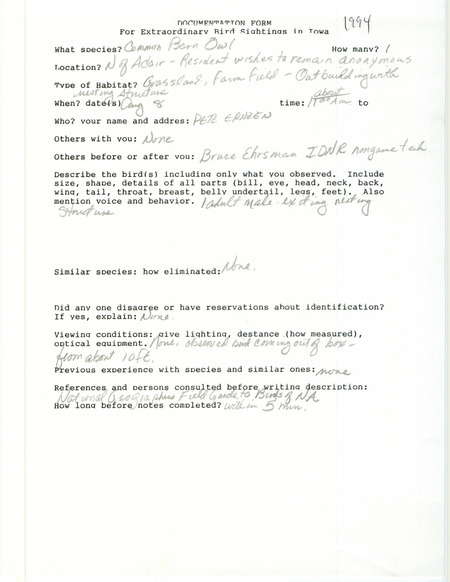 DOCUMENTATION FORM
1994
For Extraordinary Bird Sightings in Iowa
What species? Common Barn Owl How many? 1
Location? N of Adair - Resident wishes to remain anonymous
Type of Habitat? Grassland, Farm Field - Outbuilding with
nesting structure
When? date(s) Aug 8 time: about AM to
Who? your name and addres: PETE
Others with you: None
Others before or after you: Bruce Ehrsman IDNR nongame tech
Describe the bird(s) including only what you observed. Include
size, shape, details of all parts (bill, eye, head, neck, back,
wing, tail, throat, breast, belly undertail, legs, feet). Also
mention voice and behavior. 1 adult male - exiting nesting
structure
Similar species; how eliminated: None.
Did any one disagree or have reservations about identification?
If yes, explain: None.
Viewing conditions: give lighting, destance (how measured),
optical equipment. None, observed bird coming out of box -
from about 10 ft.
Previous experience with species and similar ones: none
References and persons consulted before writing description:
National Geographic Field Guide to Birds of NA
How long before notes completed? within 5 min.